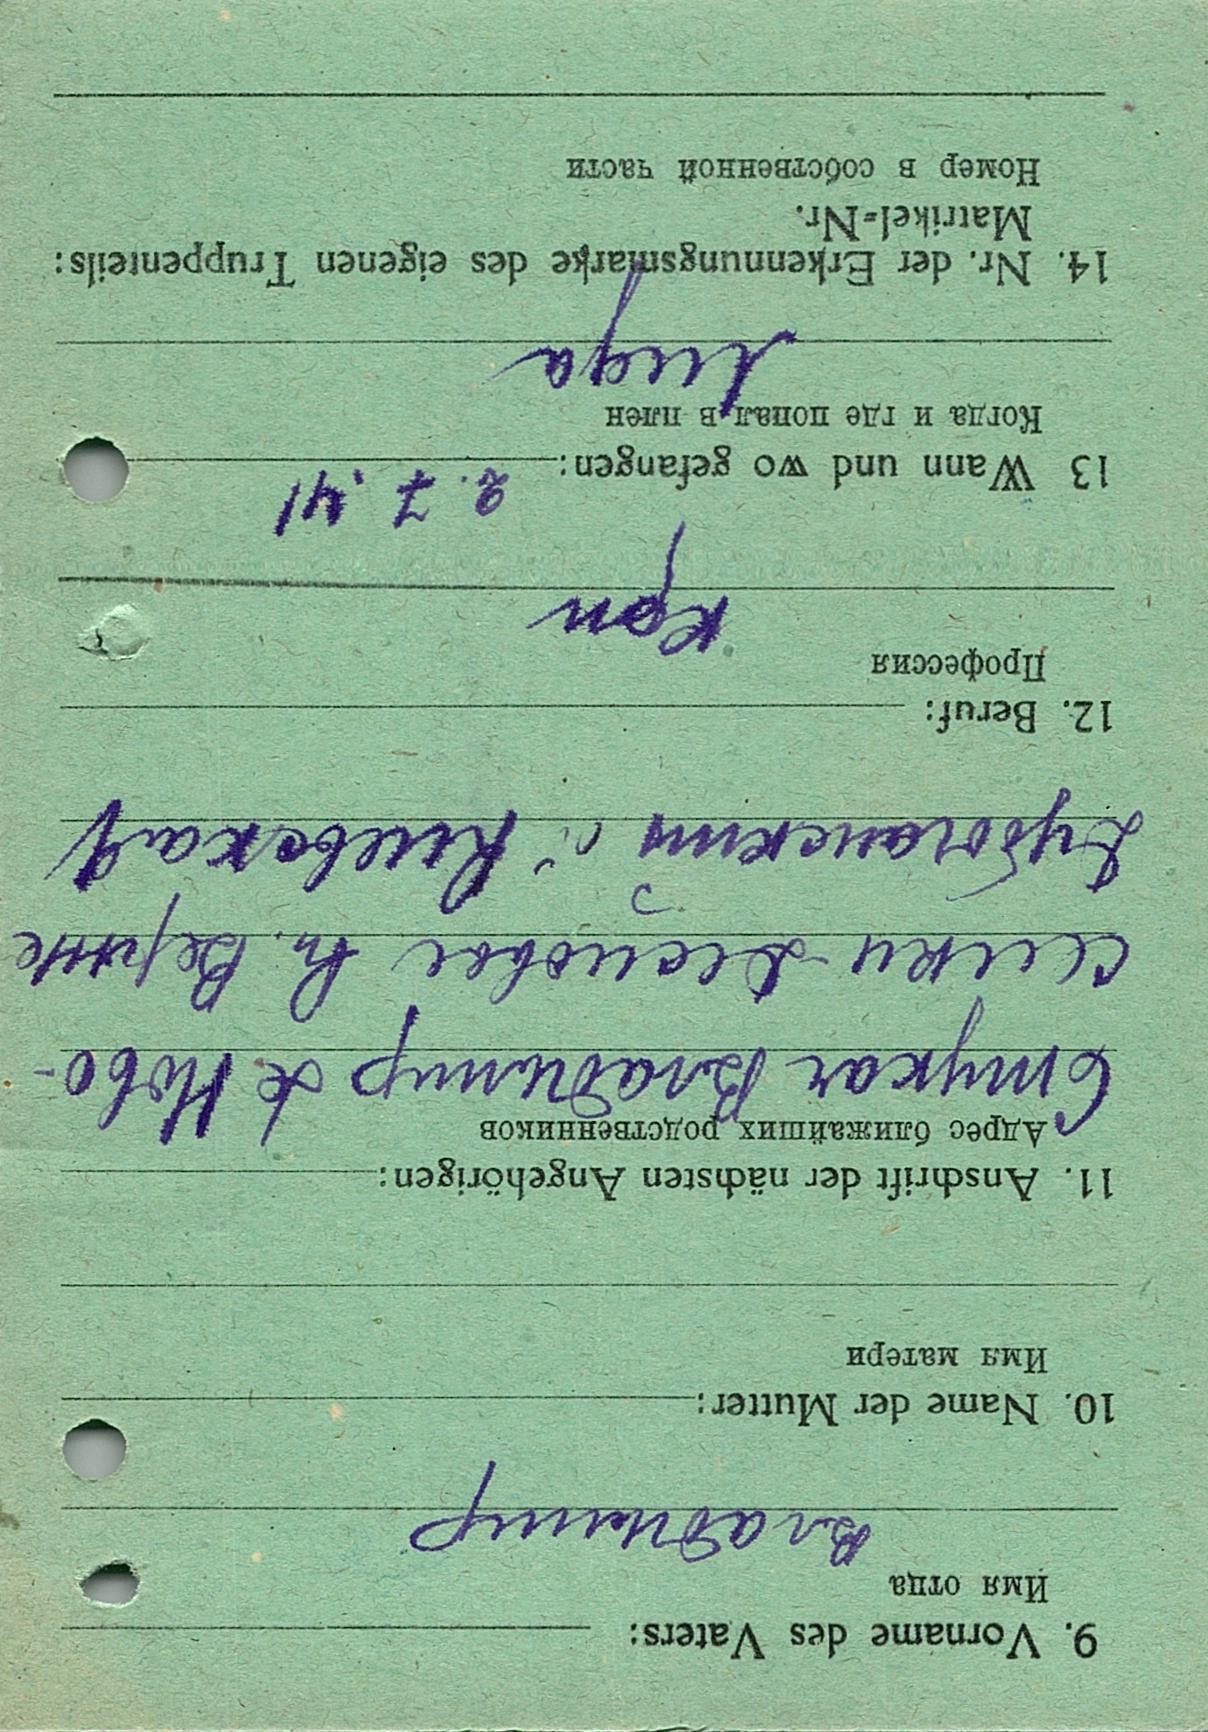 9. Vorname des Vaters:
Имя отца
Владимир
10. Name der Mutter:
Имя матери
11. Anschrift der nächsten Angehörigen:
Адрес ближайших родственников
Стукач Владимир Ново-
Киевская
12. Beruf:
Профессия
13 Wann und wo gefangen:
2.7.41
Когда и где попал в плен
Лида
14. Nr. der Erkennungsmarke des eigenen Truppenteils:
Matrikel-Nr.
Номер в собственной части